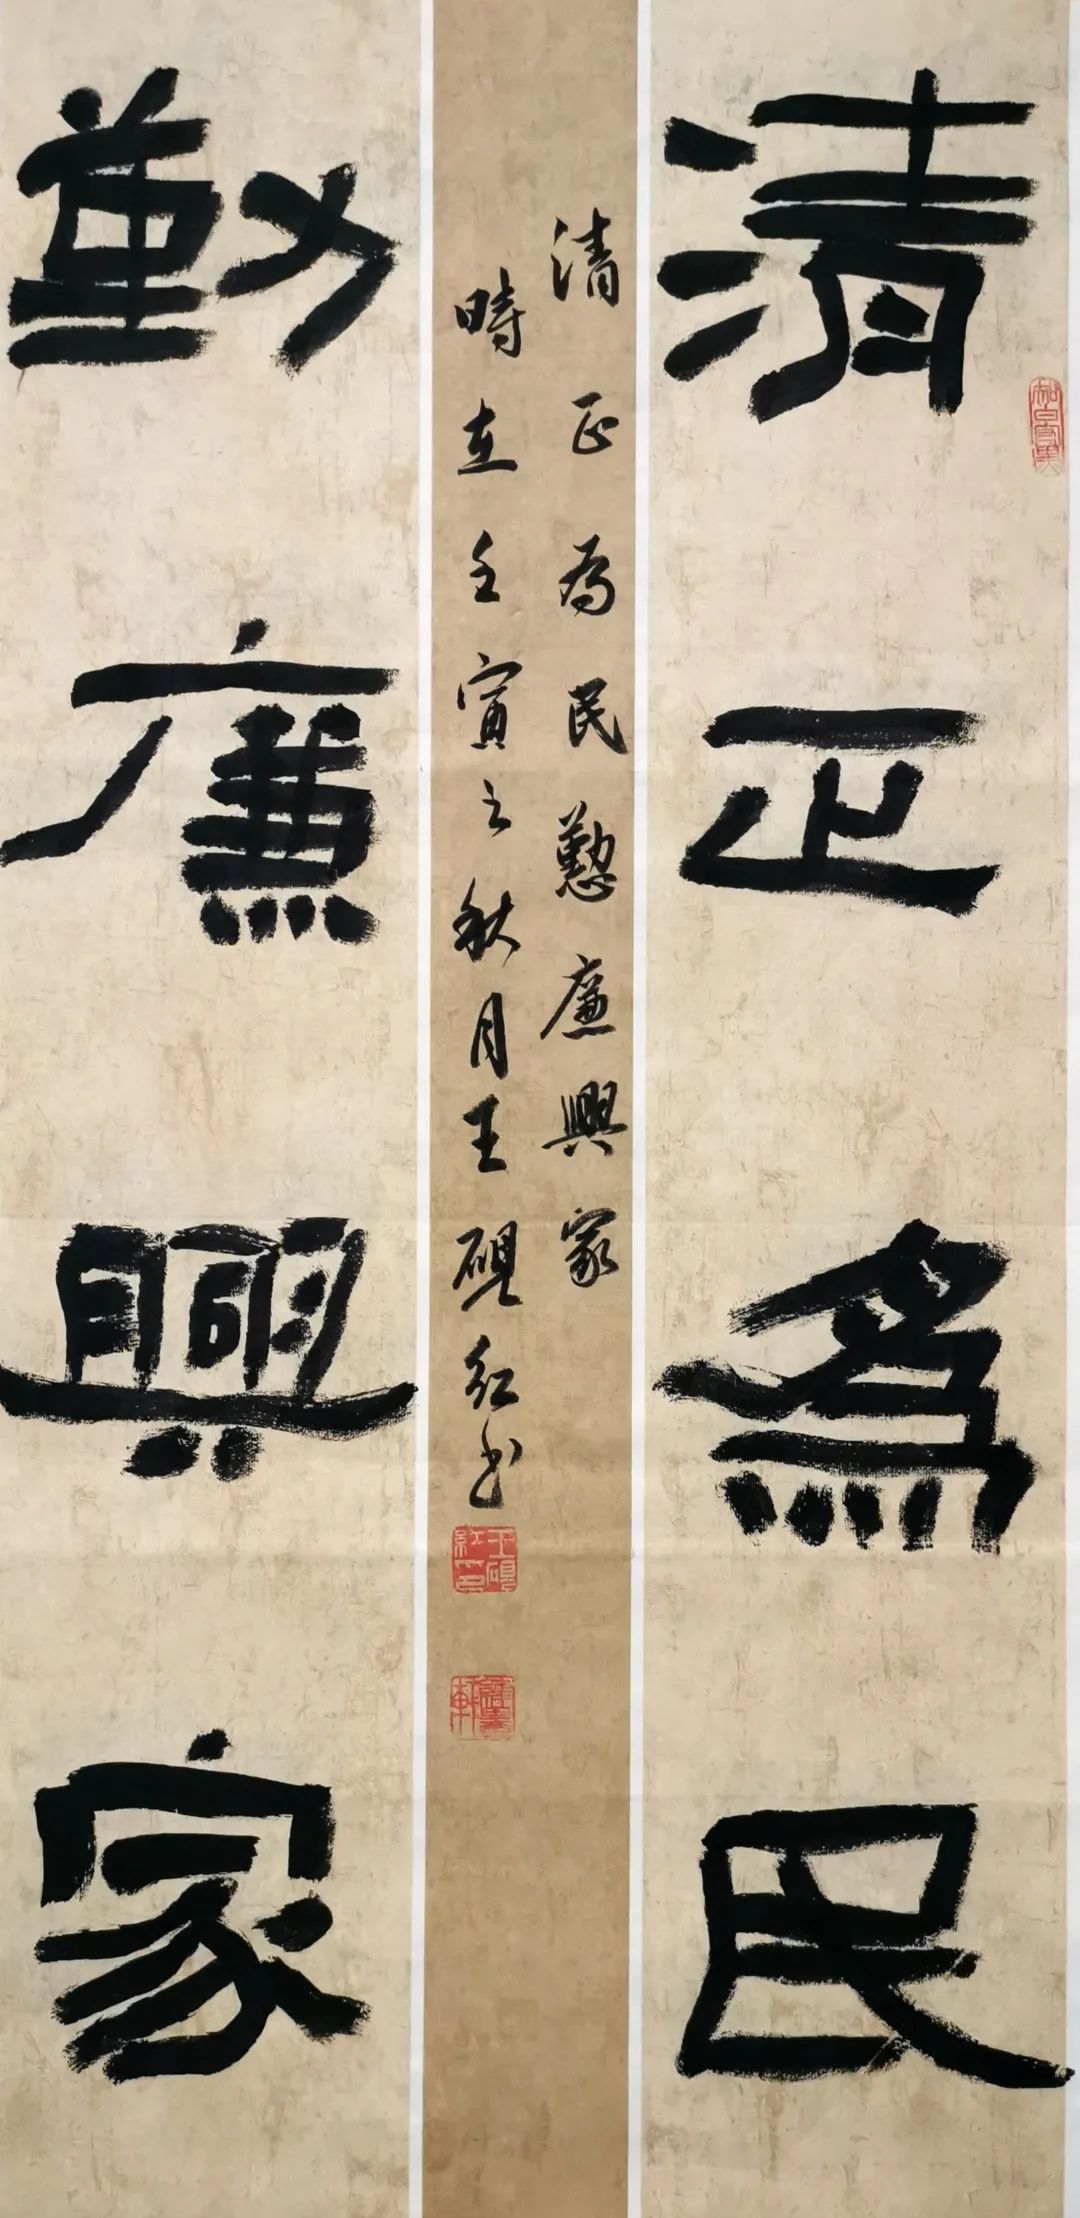 清正為民
清正为民懃廉興家
時在壬寅之秋月王硯紅书
勤廉興家
王硯紅印